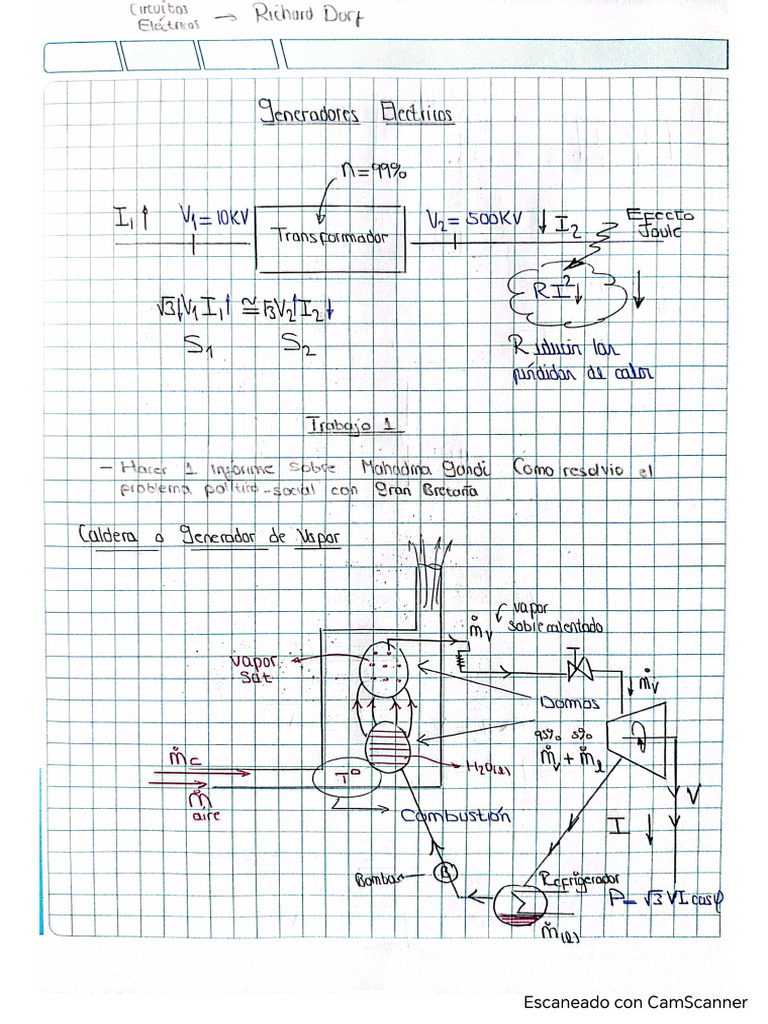 Circuitos
Eléctricos → Richard Dorf
Generadores Electricos
n=99%
I₁↑ V₁=10KV Transformador V₂=500KV ↓I₂ Efecto
Joule
RI²↓ ↓
√3↓V₁I₁↑ ≅ √3V₂↑I₂↓
S₁ S₂
Reducir las
pérdidas de calor
Trabajo 1
- Hacer 1 informe sobre Mahadma Gandi Como resolvio el
problema político-social con Gran Bretaña
Caldera o Generador de Vapor
vapor
ṁv sobrecalentado
Vapor
Sat
ṁv
Domos
95% 5%
ṁv + ṁl
H₂O(l)
ṁc
T°
ṁ
aire
Combustión
V
I ↓
Bombas B
Refrigerador
P=√3VIcosφ
ṁ(l)
Escaneado con CamScanner